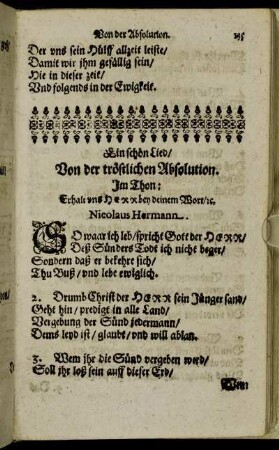 Von der Absolution.
Der vns sein Hülff allzeit leiste/
Damit wir jhm gefällig sein/
Hie in dieser zeit/
Vnd folgends in der Ewigkeit.
Ein schön Lied/
Von der tröstlichen Absolution.
Im Thon:
Erhalt vns HERR bey deinem Wort/ꝛc.
Nicolaus Hermann.
SO waar ich leb/spricht Gott der HERR/
Deß Sünders Todt ich nicht beger/
Sondern daß er bekehre sich/
Thu Buß/ vnd lebe ewiglich.
2. Drumb Christ der HERR sein Jünger sand/
Geht hin/ predigt in alle Land/
Vergebung der Sünd jedermann/
Dems leyd ist/ glaubt/ vnd will ablan.
3. Wem jhr die Sünd vergeben werd/
Soll jhr loß sein auff dieser Erd/
Wem